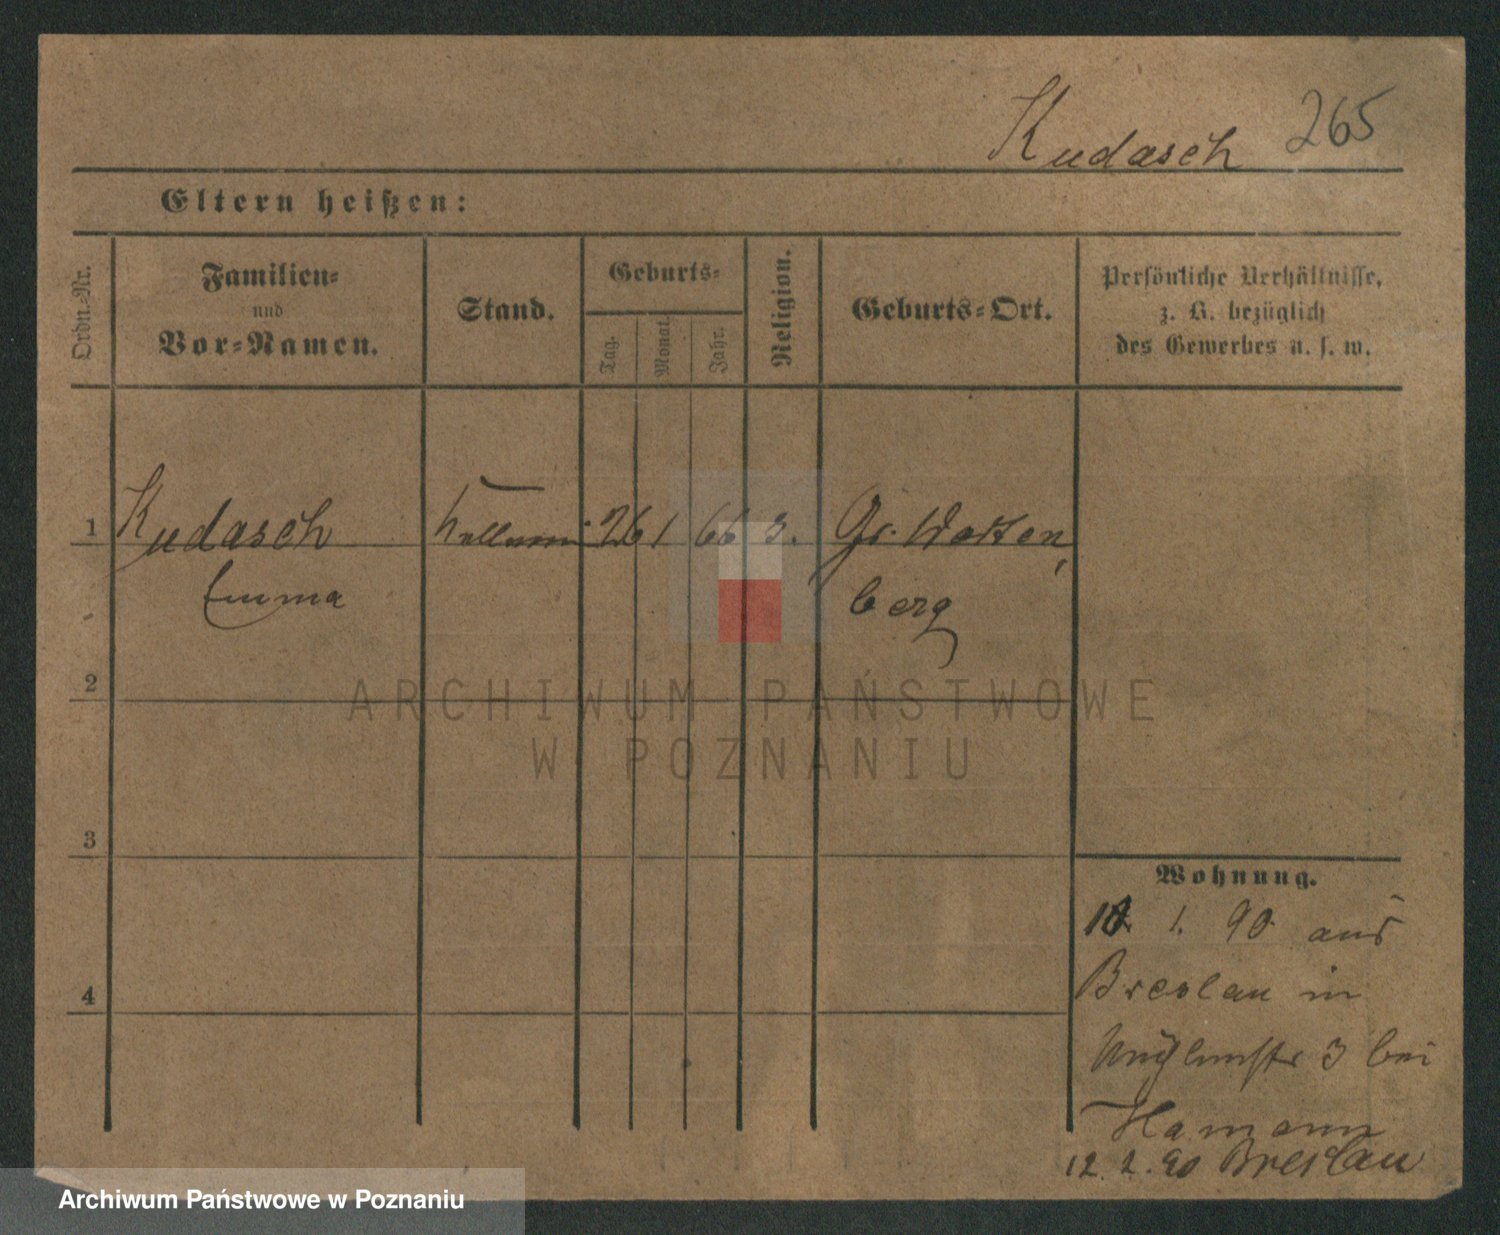 Kudasch 265
Eltern heißen:
Ordn.-Nr.
Familien-
und
Vor-Namen.
Stand.
Geburts-
Tag.
Monat.
Jahr.
Religion.
Geburts-Ort.
Persönliche Verhältnisse,
z. B. bezüglich
des Gewerbes u. s. w.
1 Kudasch 26 1 66 Gr. Warten
Emma berg
2
3
4
ARCHIWUM PAŃSTWOWE
W POZNANIU
Wohnung.
1. 90 aus
Breslau in
3 bei
Hamann
12. 2. 90 Breslau
Archiwum Państwowe w Poznaniu